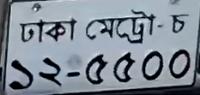 ঢাকা মেট্রো-চ
১২-৫৫০০